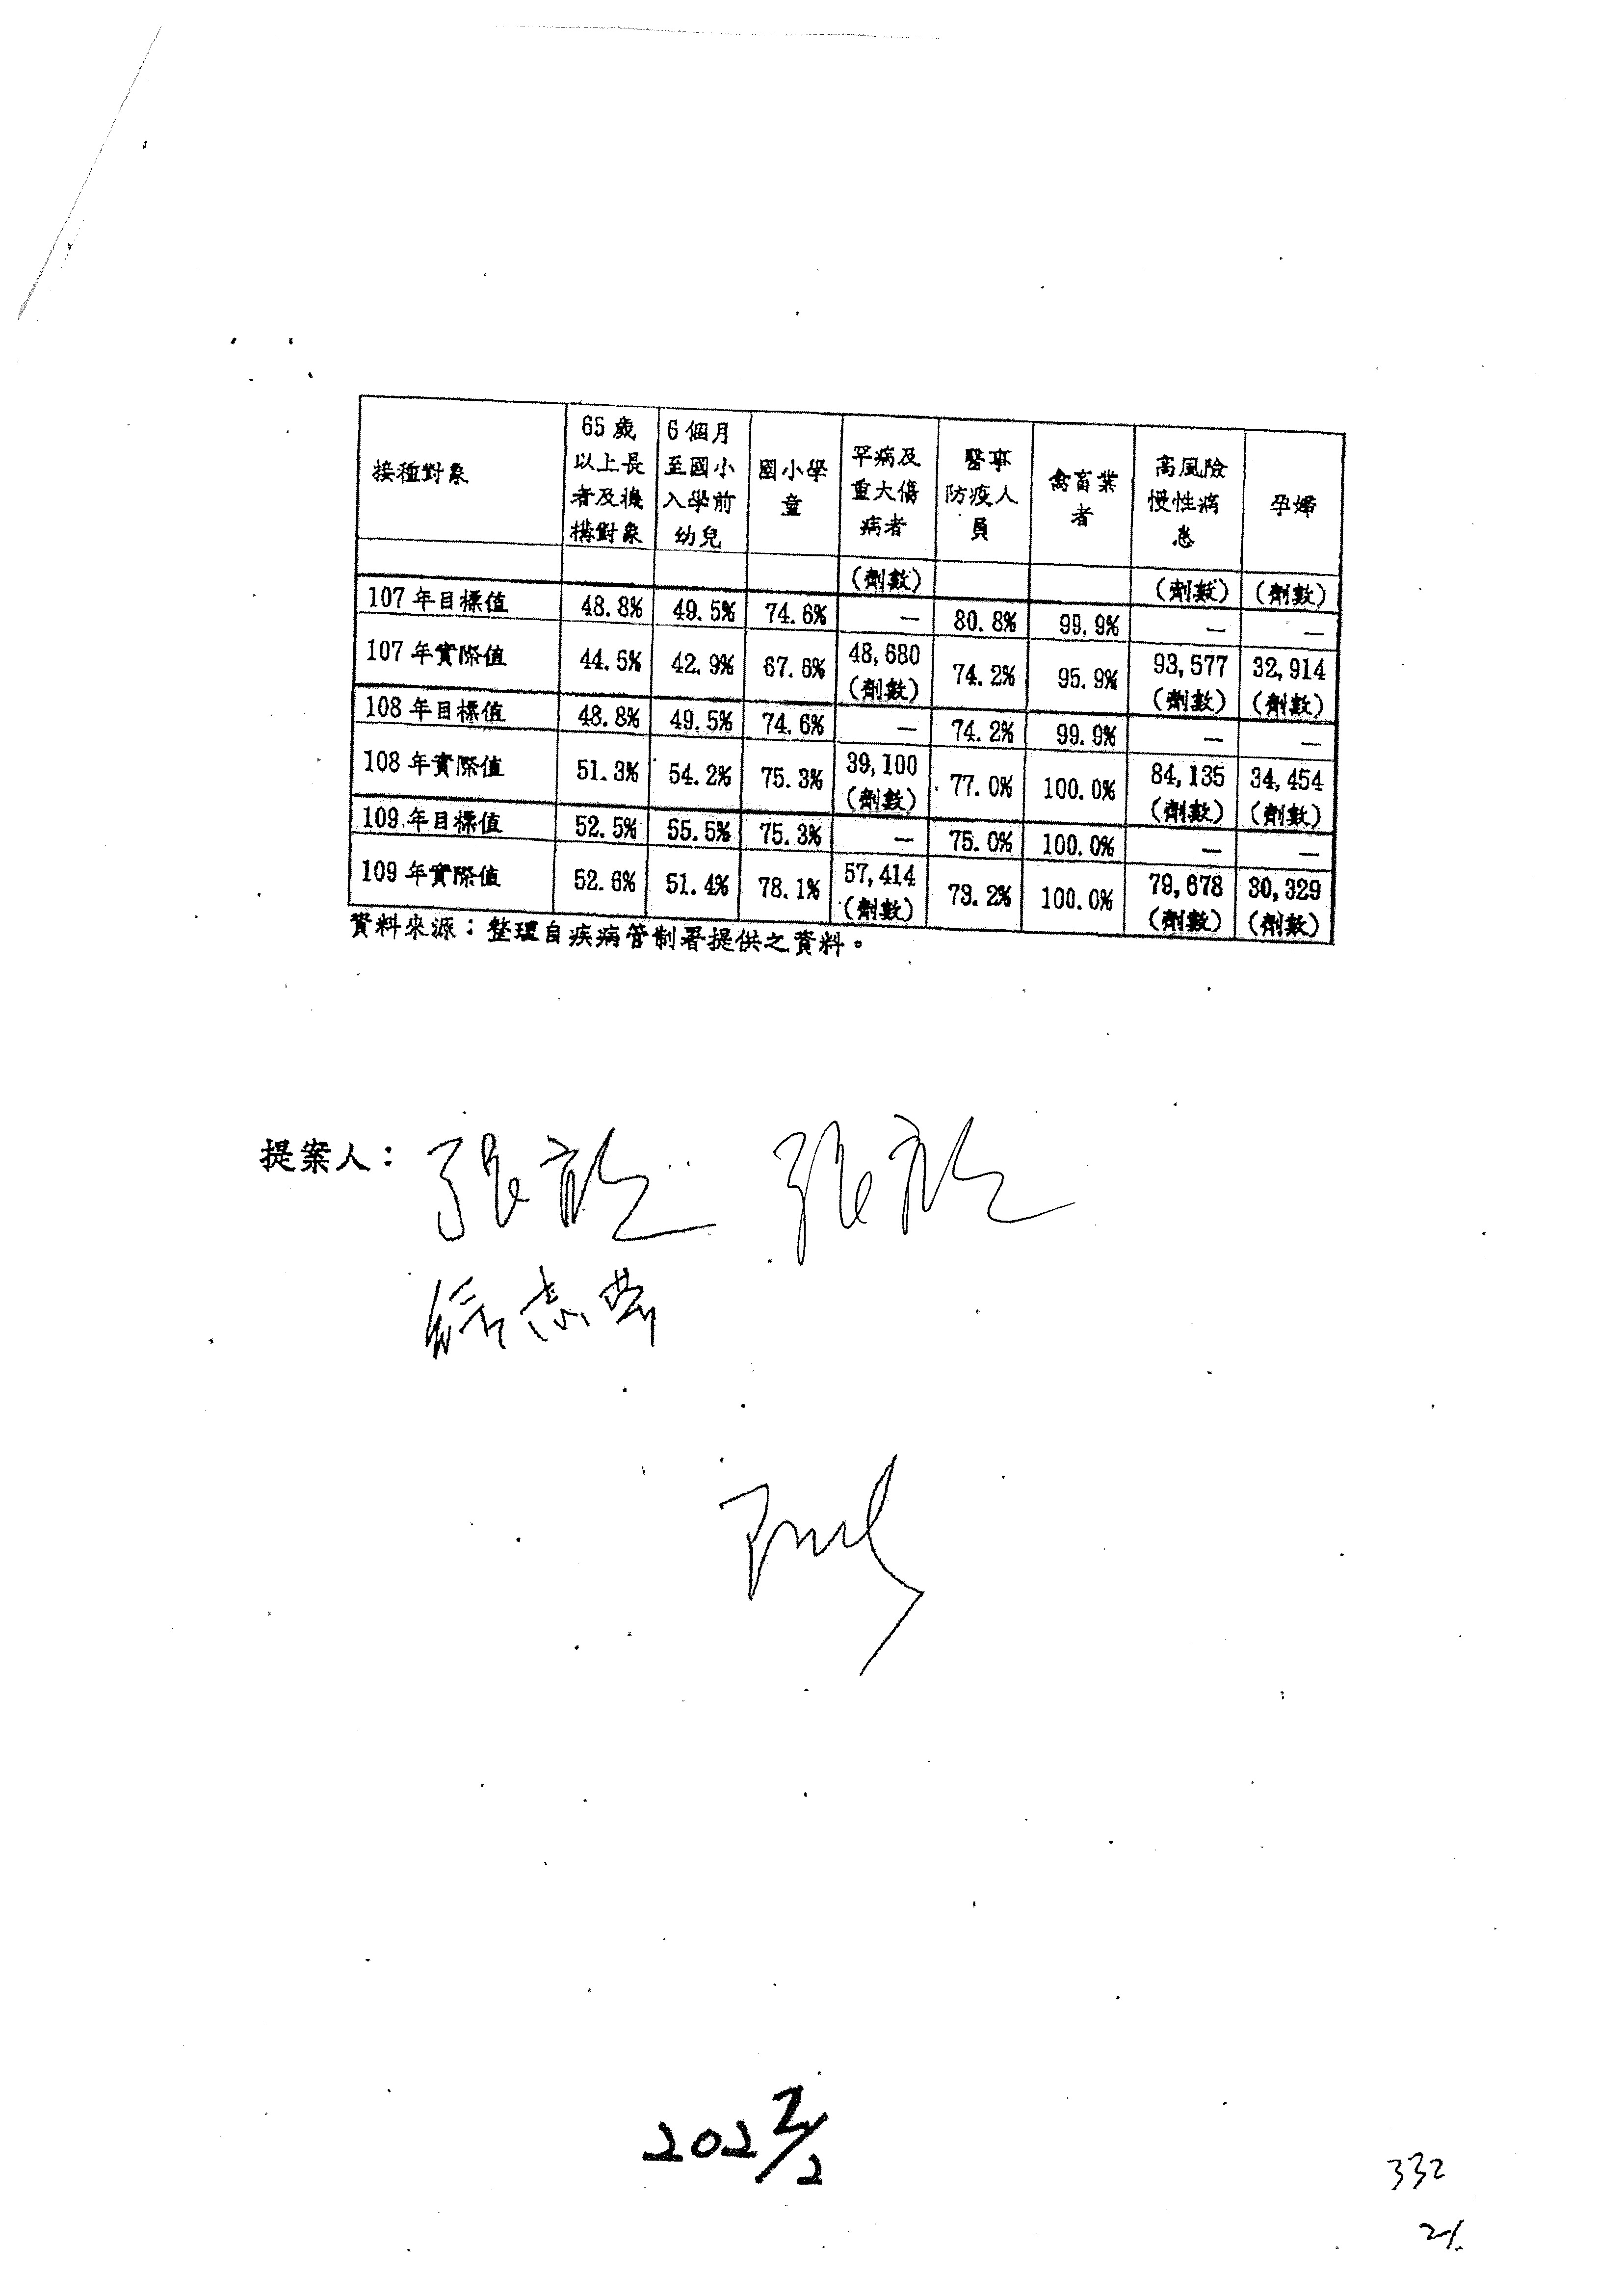 接種對象 65歲以上長者及機構對象 6個月至國小入學前幼兒 國小學童 罕病及重大傷病者 醫事防疫人員 禽畜業者 高風險慢性病患 孕婦
(劑數) (劑數) (劑數)
107年目標值 48.8% 49.5% 74.6% — 80.8% 99.9% — —
107年實際值 44.5% 42.9% 67.6% 48,680(劑數) 74.2% 95.9% 93,577(劑數) 32,914(劑數)
108年目標值 48.8% 49.5% 74.6% — 74.2% 99.9% — —
108年實際值 51.3% 54.2% 75.3% 39,100(劑數) 77.0% 100.0% 84,135(劑數) 34,454(劑數)
109年目標值 52.5% 55.5% 75.3% — 75.0% 100.0% — —
109年實際值 52.6% 51.4% 78.1% 57,414(劑數) 79.2% 100.0% 79,678(劑數) 30,329(劑數)
資料來源：整理自疾病管制署提供之資料。
提案人：
332